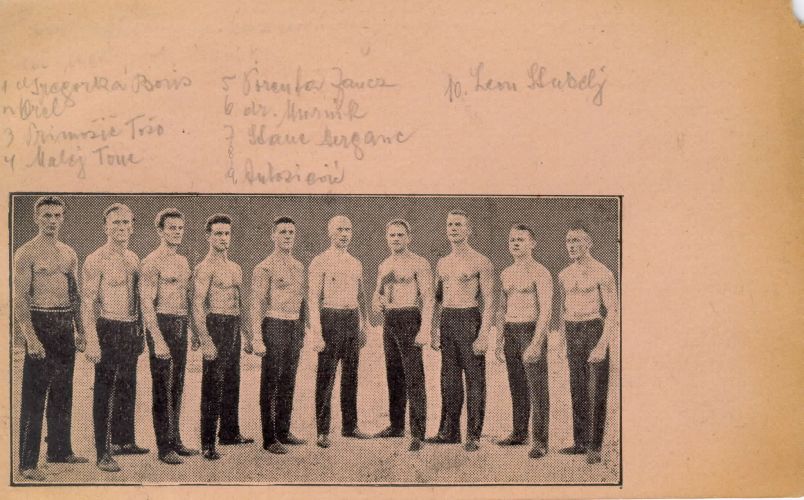 1 Gregorka Boris
2 Orel
3 Primožič Tošo
4 Malej Tone
5 Porenta Jancz
6 dr. Murnik
7 Stane Derganc
8
9 Antosiewicz
10. Leon Štukelj